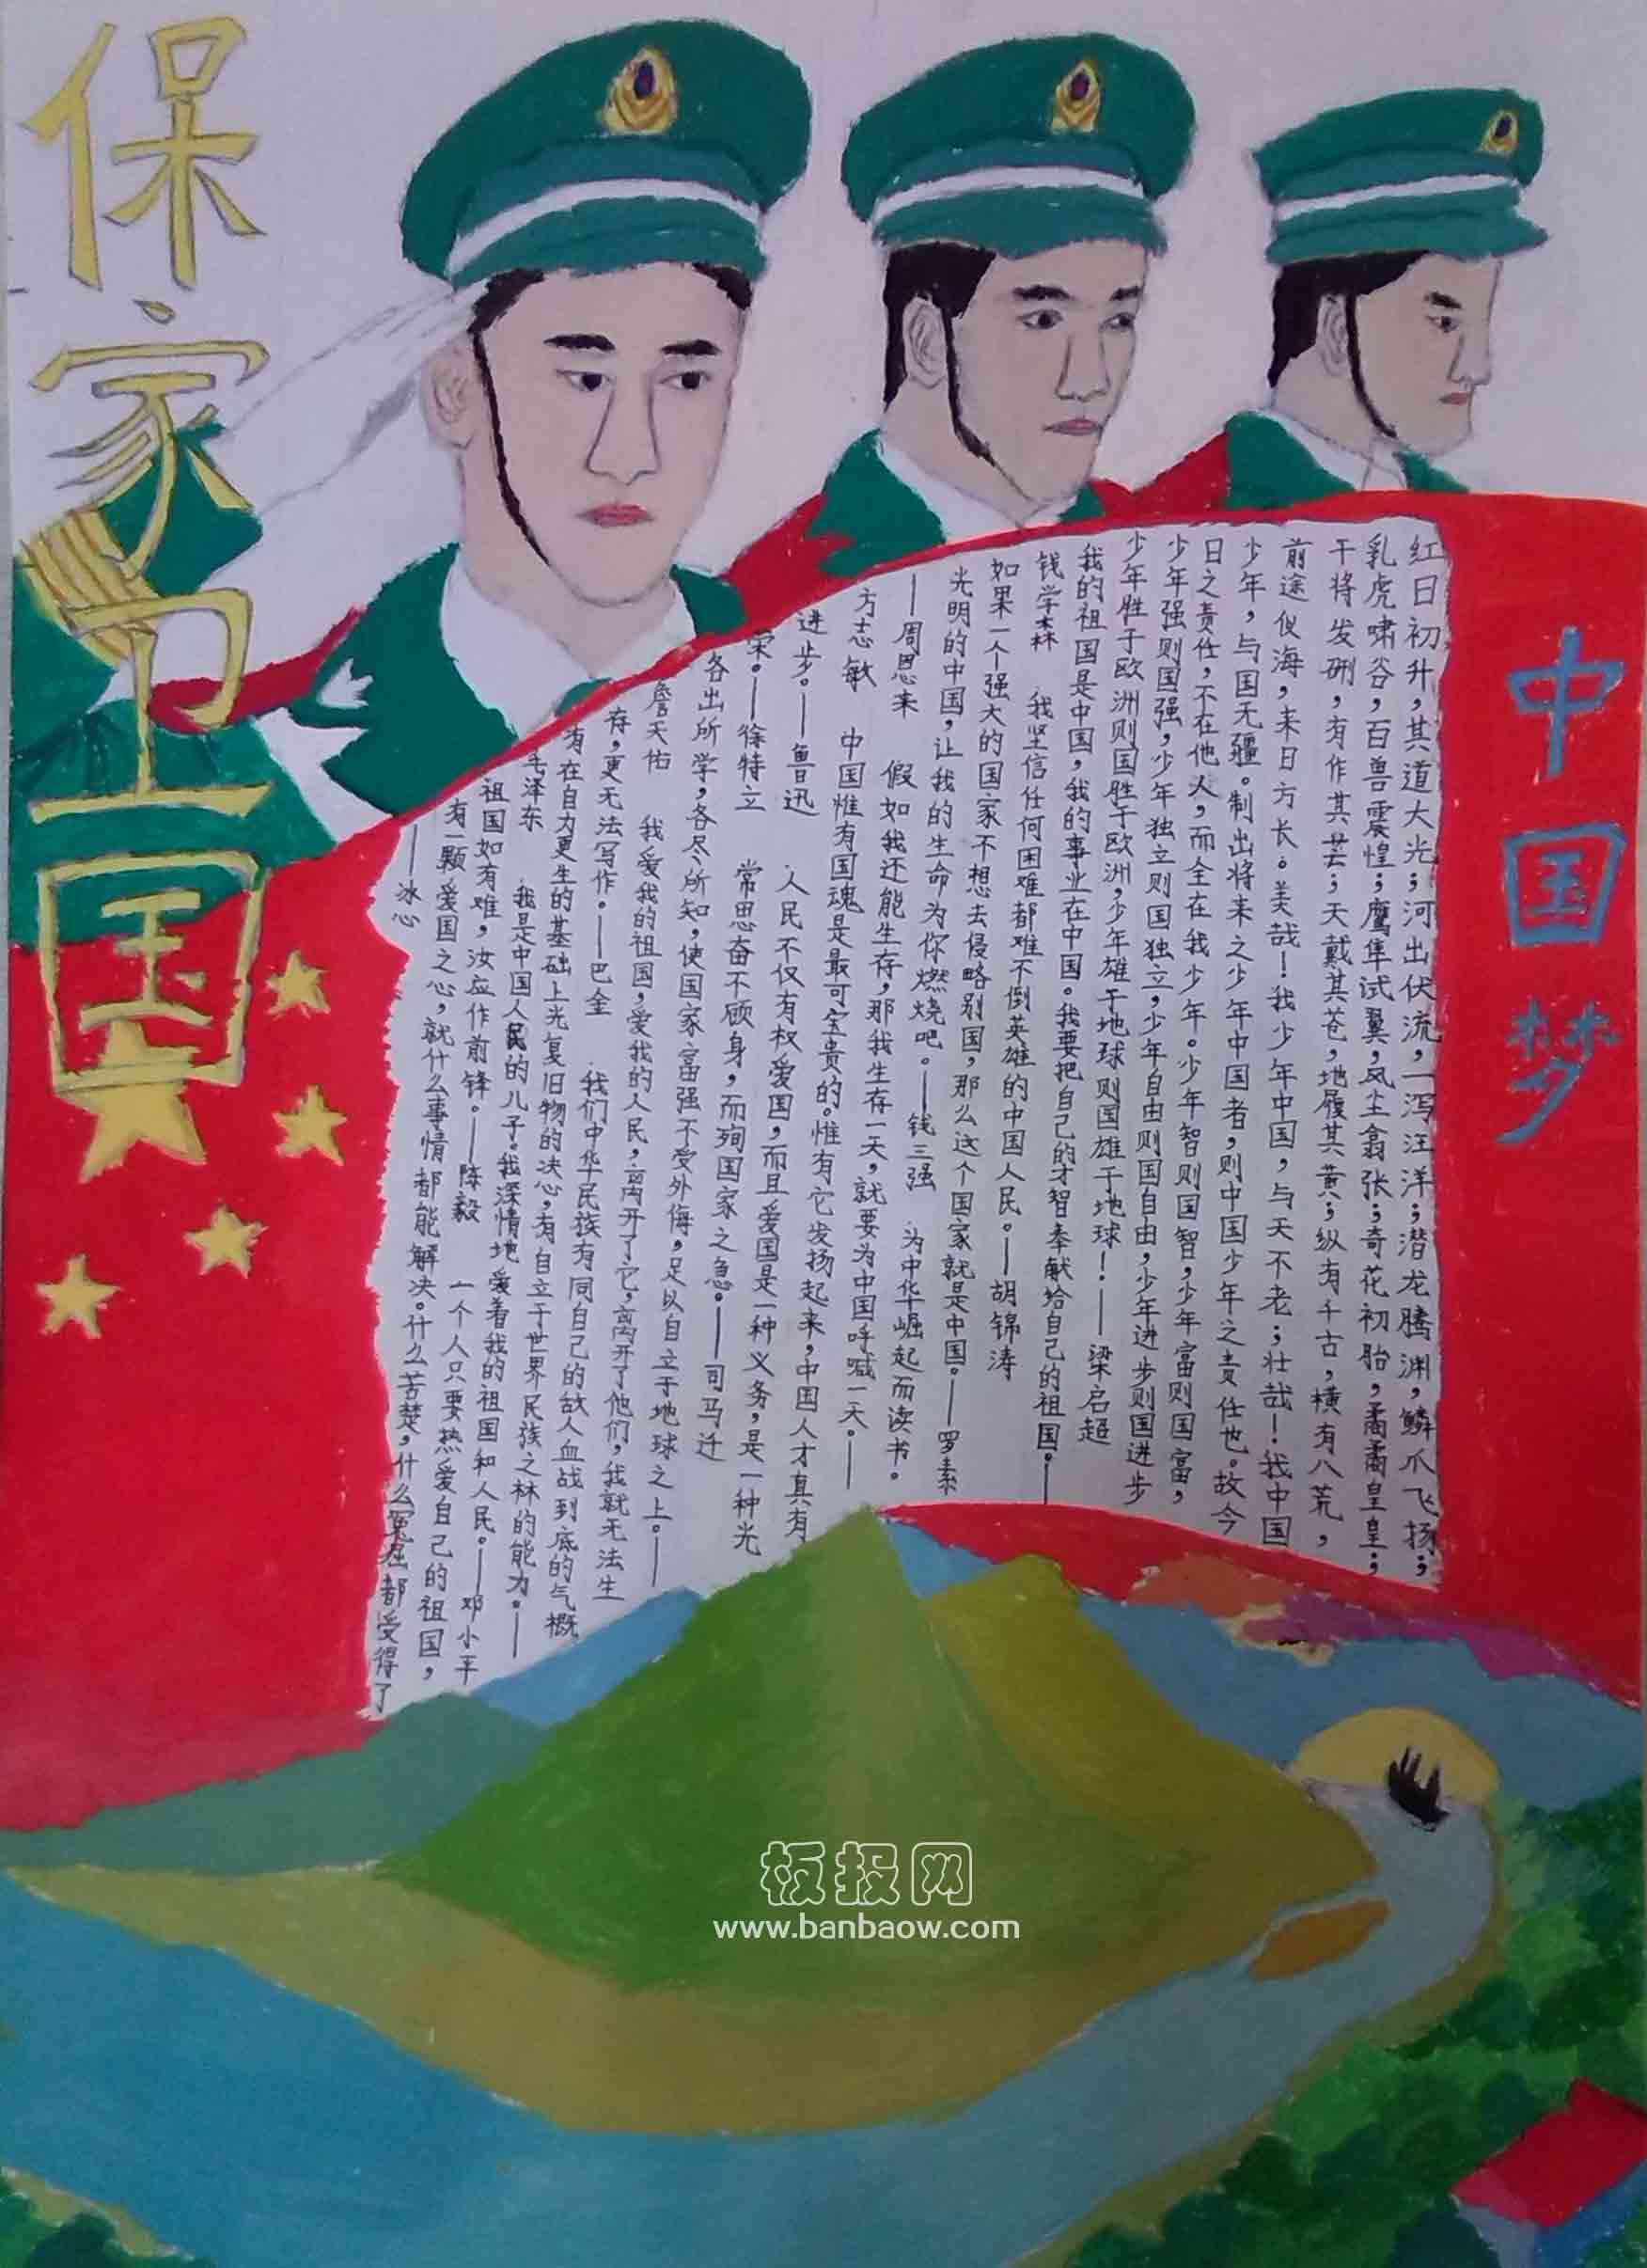 保家卫国
中国梦
红日初升，其道大光；河出伏流，一泻汪洋；潜龙腾渊，鳞爪飞扬；
乳虎啸谷，百兽震惶；鹰隼试翼，风尘翕张；奇花初胎，矞矞皇皇；
干将发硎，有作其芒；天戴其苍，地履其黄；纵有千古，横有八荒，
前途似海，来日方长。美哉！我少年中国，与天不老；壮哉！我中国
少年，与国无疆。制出将来之少年中国者，则中国少年之责任也。故今
日之责任，不在他人，而全在我少年。少年智则国智，少年富则国富，
少年强则国强，少年独立则国独立，少年自由则国自由，少年进步则国进步
少年胜于欧洲则国胜于欧洲，少年雄于地球则国雄于地球！——梁启超
我的祖国是中国，我的事业在中国。我要把自己的才智奉献给自己的祖国。——
钱学森 我坚信任何困难都难不倒英雄的中国人民。——胡锦涛
如果一个强大的国家不想去侵略别国，那么这个国家就是中国。——罗素
光明的中国，让我的生命为你燃烧吧。——钱三强 为中华崛起而读书。
——周恩来 假如我还能生存，那我生存一天，就要为中国呼喊一天。——
方志敏 中国惟有国魂是最可宝贵的。惟有它发扬起来，中国人才真有
进步。——鲁迅 人民不仅有权爱国，而且爱国是一种义务，是一种光
荣。——徐特立 常思奋不顾身，而殉国家之急。——司马迁
各出所学，各尽所知，使国家富强不受外侮，足以自立于地球之上。——
詹天佑 我爱我的祖国，爱我的人民，离开了它，离开了他们，我就无法生
存，更无法写作。——巴金 我们中华民族有同自己的敌人血战到底的气概
有在自力更生的基础上光复旧物的决心，有自立于世界民族之林的能力。——
毛泽东 我是中国人民的儿子。我深情地爱着我的祖国和人民。——邓小平
祖国如有难，汝应作前锋。——陈毅 一个人只要热爱自己的祖国，
有一颗爱国之心，就什么事情都能解决。什么苦楚，什么冤屈都受得了
——冰心
板报网
www.banbaow.com